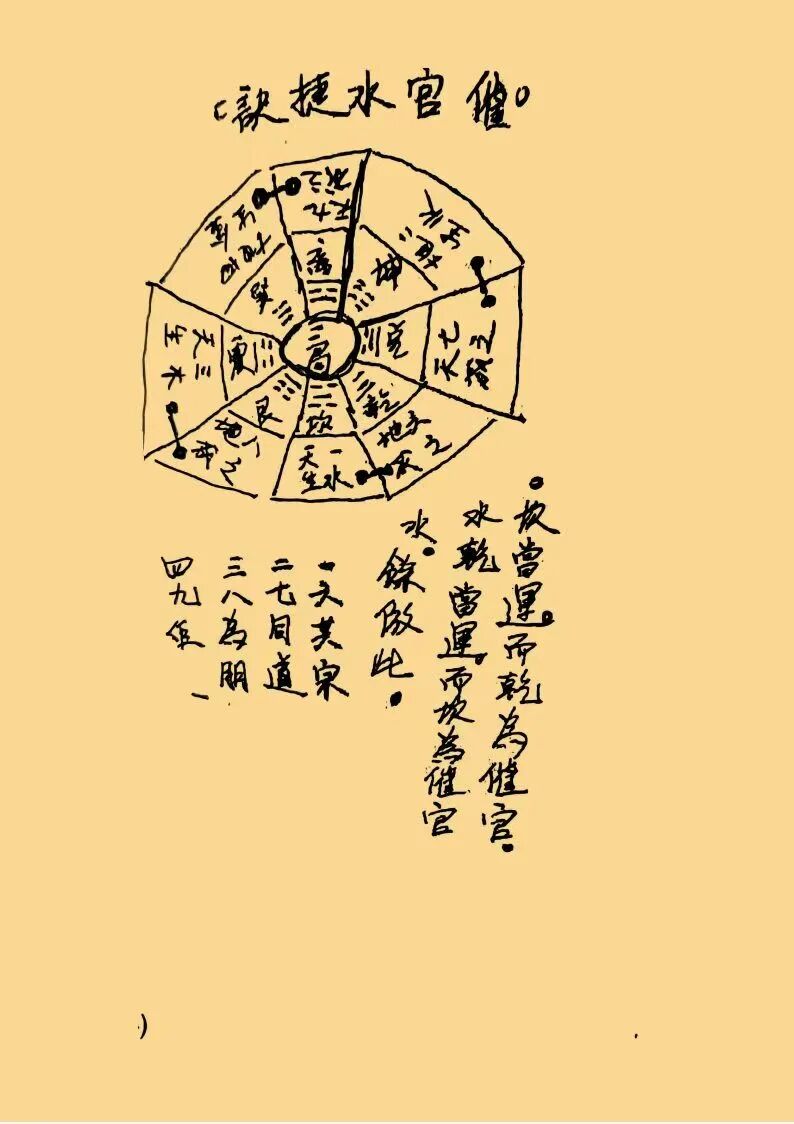 催官水捷訣
離
天九
成之
坤
地二
生火
兌
天七
成之
乾
地六
成之
坎
天一
生水
艮
地八
成之
震
天三
生木
巽
地四
生金
坎當運。而乾為催官。
水乾當運。而坎為催官
水。餘倣此。
一六共宗
二七同道
三八為朋
四九作